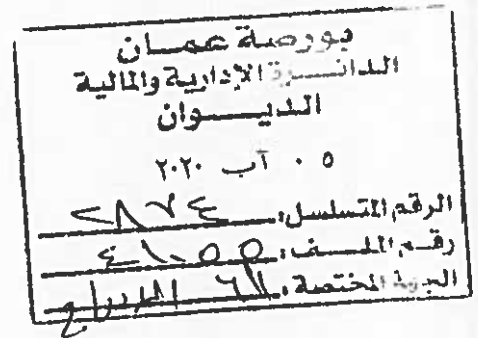 بورصة عمان
الدائرة الإدارية والمالية
الديوان
٠٥ آب ٢٠٢٠
الرقم المتسلسل: ٢٨٧٤
رقم الملف:
الجهة المختصة: الإدراج